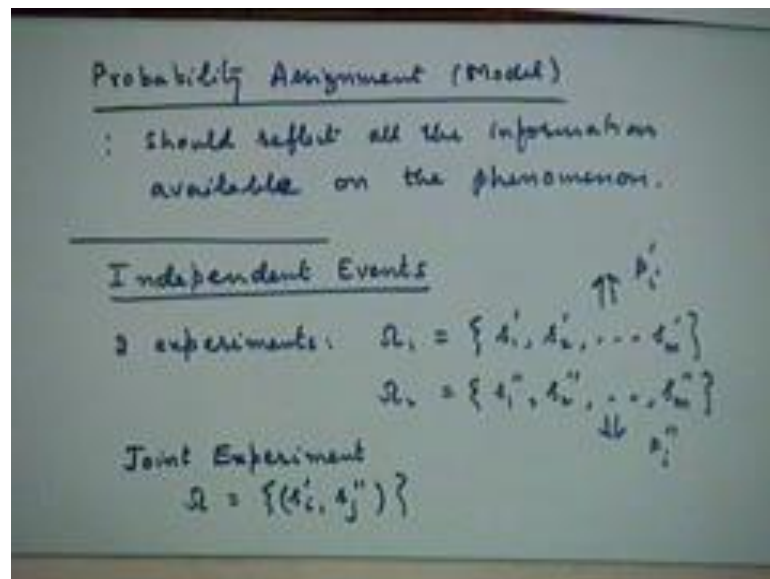 Probability Assignment (Model)
: Should reflect all the information
available on the phenomenon.
Independent Events
⇑ p'ᵢ
2 experiments: Ω₁ = { s'₁, s'₂, ... s'ₘ }
Ω₂ = { s''₁, s''₂, ..., s''ₘ }
⇓ p''ᵢ
Joint Experiment
Ω = {(s'ᵢ, s''ⱼ)}